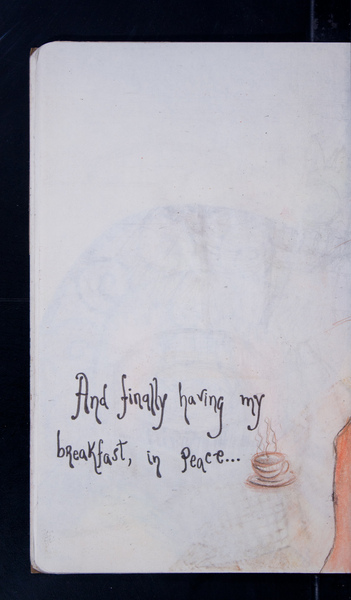 And finally having my
breakfast, in peace...